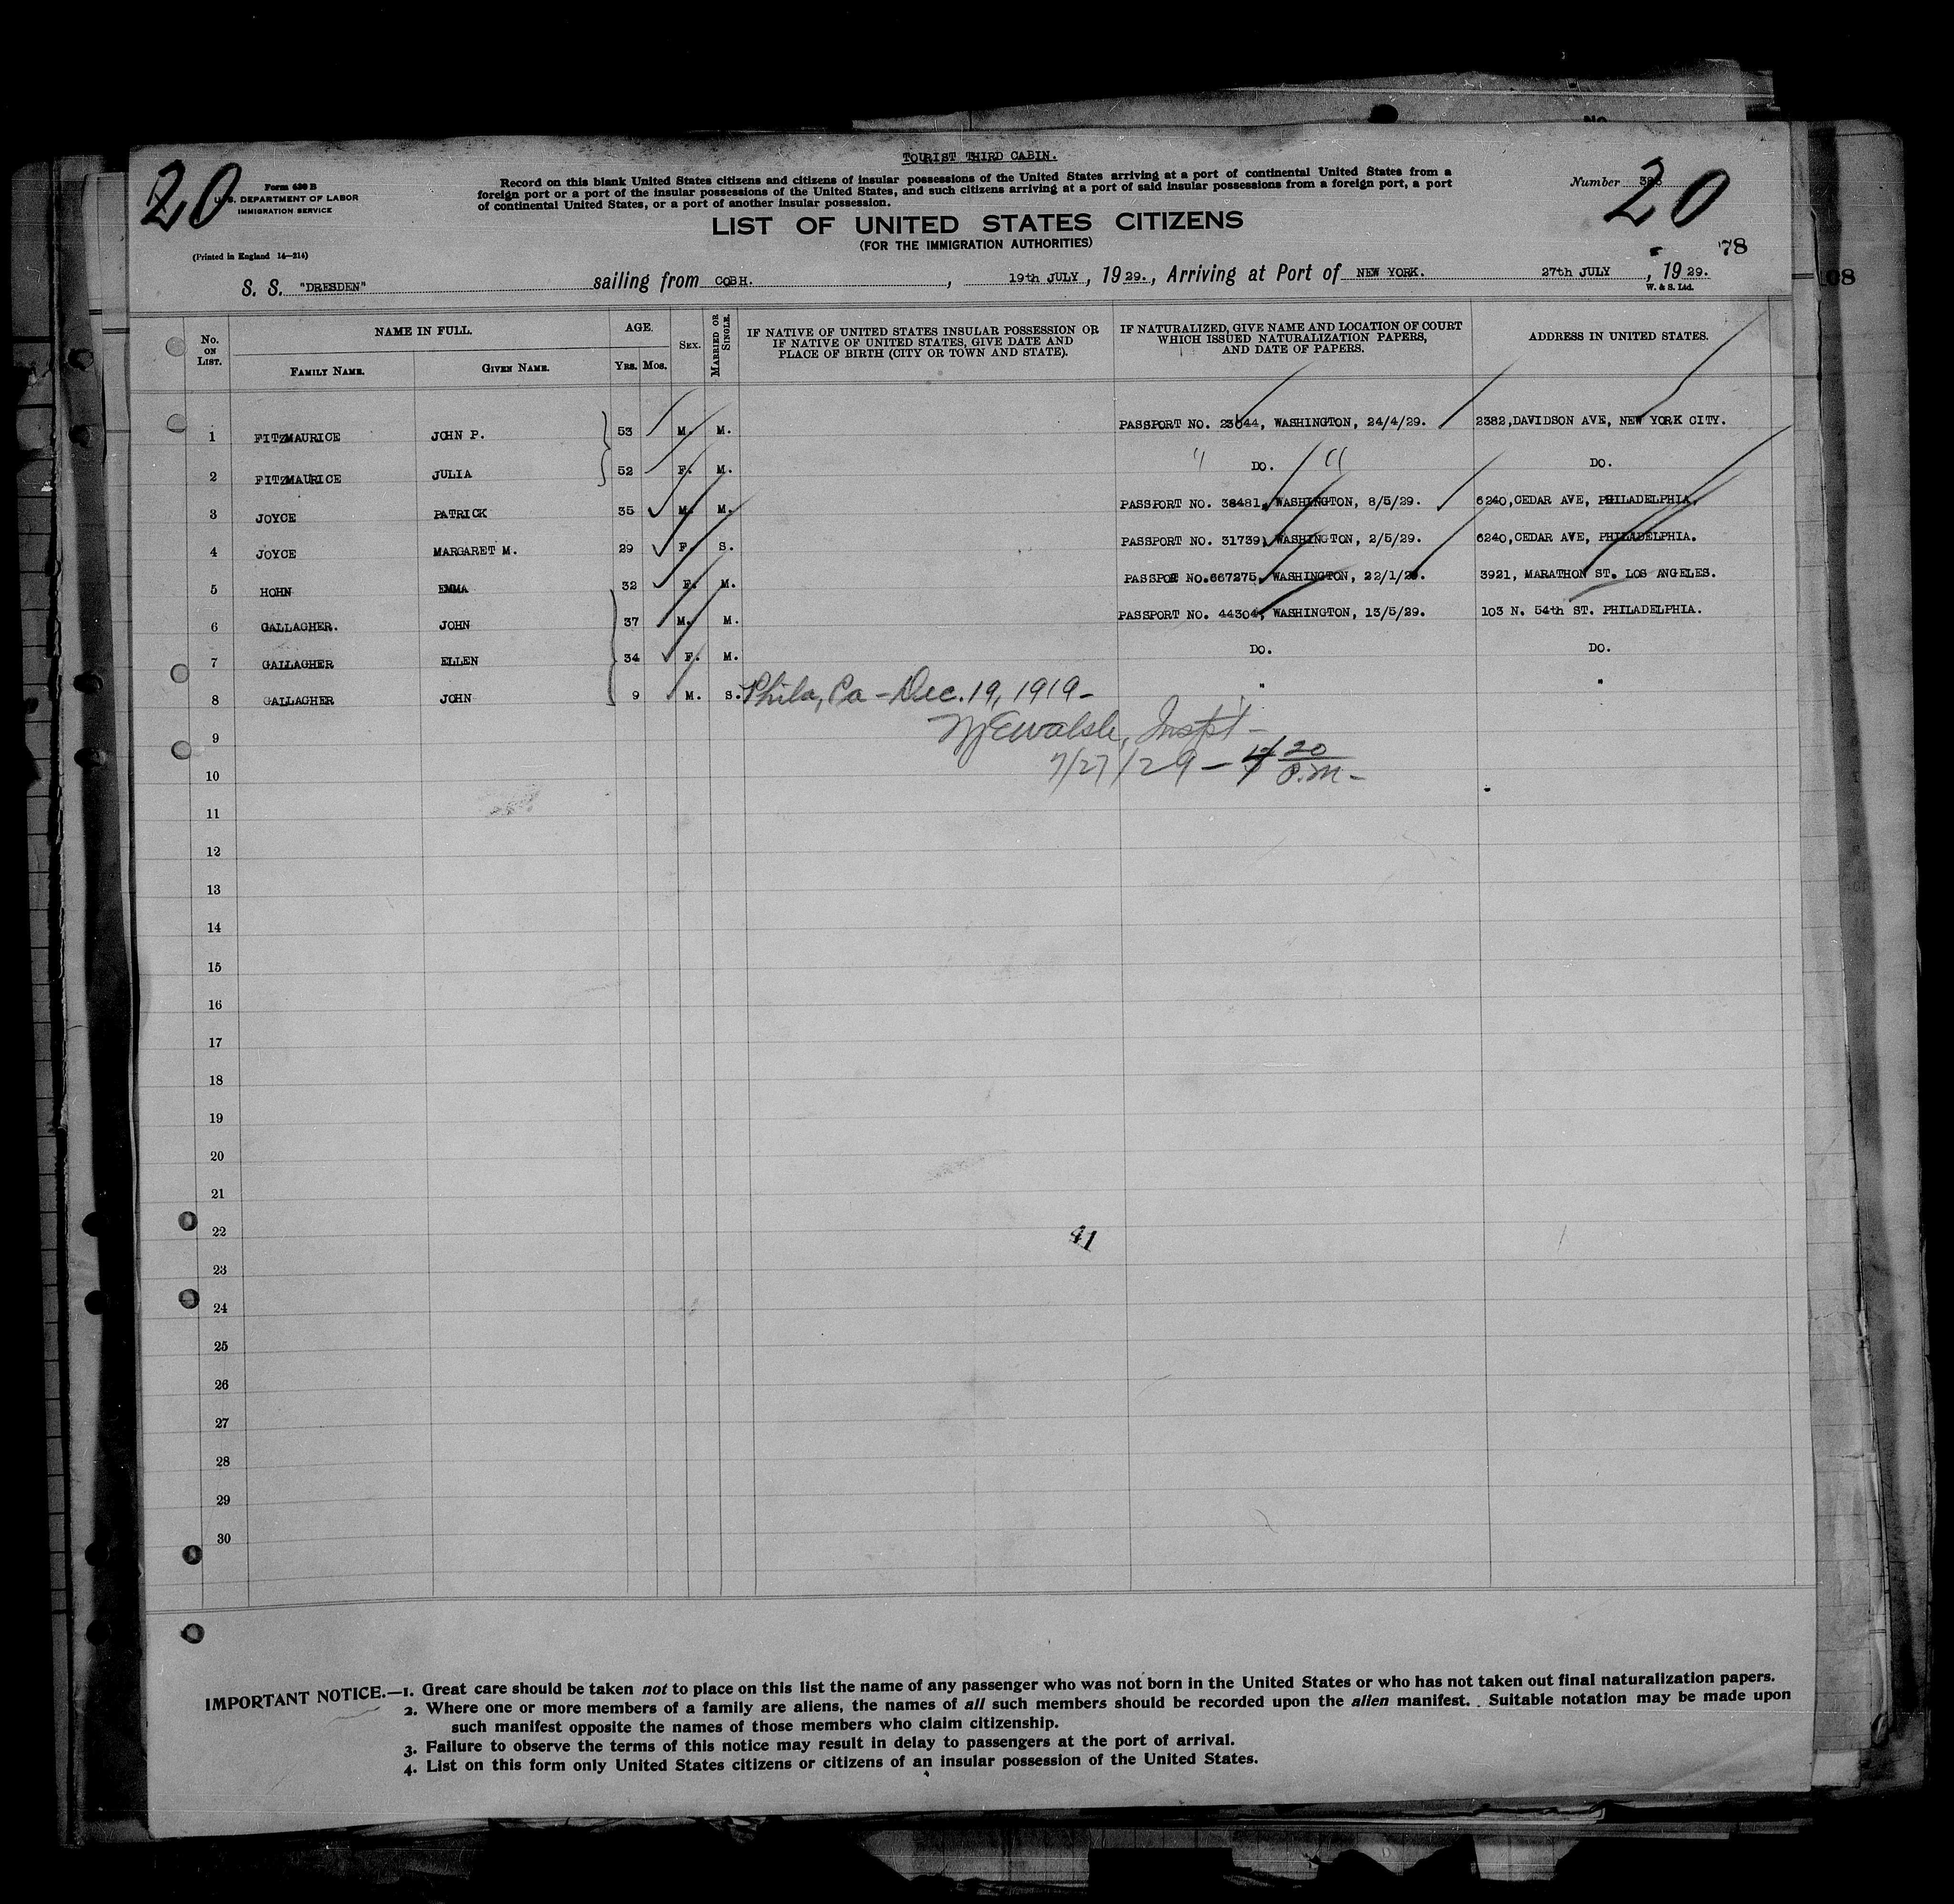 TOURIST THIRD CABIN.
20
Form 630 B
U.S. DEPARTMENT OF LABOR
IMMIGRATION SERVICE
(Printed in England 14—214)
Record on this blank United States citizens and citizens of insular possessions of the United States arriving at a port of continental United States from a
foreign port or a port of the insular possessions of the United States, and such citizens arriving at a port of said insular possessions from a foreign port, a port
of continental United States, or a port of another insular possession.
Number
20
LIST OF UNITED STATES CITIZENS
(FOR THE IMMIGRATION AUTHORITIES)
78
S. S. "DRESDEN" sailing from COBH. , 19th JULY , 1929., Arriving at Port of NEW YORK. 27th JULY , 1929.
W. & S. Ltd.
No. ON LIST.
NAME IN FULL.
FAMILY NAME. GIVEN NAME.
AGE.
YRS. MOS.
SEX.
MARRIED OR SINGLE.
IF NATIVE OF UNITED STATES INSULAR POSSESSION OR
IF NATIVE OF UNITED STATES, GIVE DATE AND
PLACE OF BIRTH (CITY OR TOWN AND STATE).
IF NATURALIZED, GIVE NAME AND LOCATION OF COURT
WHICH ISSUED NATURALIZATION PAPERS,
AND DATE OF PAPERS.
ADDRESS IN UNITED STATES.
1 FITZMAURICE JOHN P. 53 M. M. PASSPORT NO. WASHINGTON, 24/4/29. 2382,DAVIDSON AVE, NEW YORK CITY.
2 FITZMAURICE JULIA 52 F. M. " DO. " DO.
3 JOYCE PATRICK 35 M. M. PASSPORT NO. 38481, WASHINGTON, 8/5/29. 6240,CEDAR AVE, PHILADELPHIA.
4 JOYCE MARGARET M. 29 F. S. PASSPORT NO. 31739, WASHINGTON, 2/5/29. 6240,CEDAR AVE, PHILADELPHIA.
5 HOHN EMMA 32 F. M. PASSPOR NO.667275, WASHINGTON, 22/1/29. 3921, MARATHON ST. LOS ANGELES.
6 GALLAGHER. JOHN 37 M. M. PASSPORT NO. 44304, WASHINGTON, 13/5/29. 103 N. 54th ST. PHILADELPHIA.
7 GALLAGHER ELLEN 34 F. M. DO. DO.
8 GALLAGHER JOHN 9 M. S. Phila, Pa - Dec. 19, 1919- " "
9 Inspt -
10 7/27/29 - 4 20 P.M. -
11
12
13
14
15
16
17
18
19
20
21
22 41
23
24
25
26
27
28
29
30
IMPORTANT NOTICE.—1. Great care should be taken not to place on this list the name of any passenger who was not born in the United States or who has not taken out final naturalization papers.
2. Where one or more members of a family are aliens, the names of all such members should be recorded upon the alien manifest. Suitable notation may be made upon
such manifest opposite the names of those members who claim citizenship.
3. Failure to observe the terms of this notice may result in delay to passengers at the port of arrival.
4. List on this form only United States citizens or citizens of an insular possession of the United States.